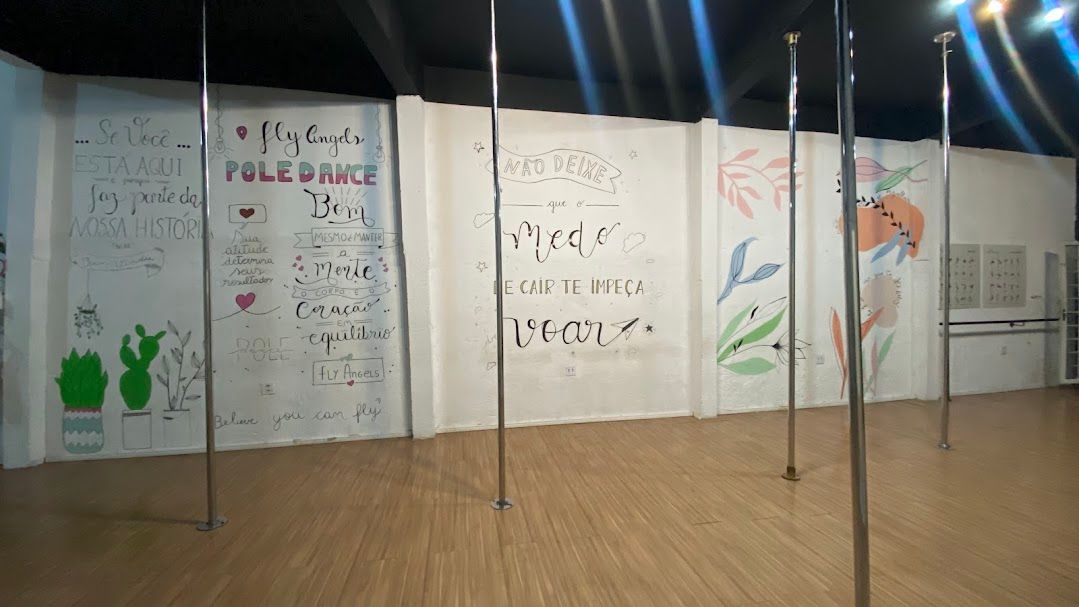 ... Se Você ...
ESTA AQUI
faz parte da
NOSSA HISTÓRIA
fly Angels
POLE DANCE
Sua
atitude
determina
seus
resultados
POLE
Bom
MESMO É MANTER
a
Mente
O CORPO E O
Coração ..
EM
equilíbrio
fly ANGELS
Believe you can fly!
NÃO DEIXE
que o
Medo
DE CAIR TE IMPEÇA
voar